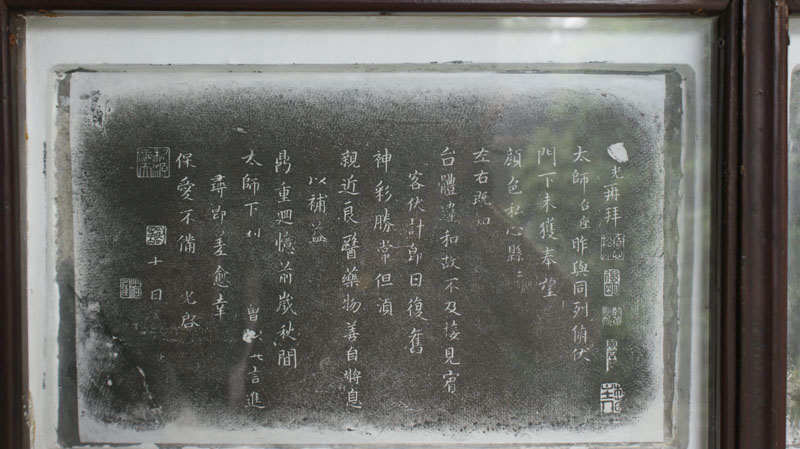 光再拜
太師台座昨與同列俯伏
門下未獲奉望
顏色私心縣〻
左右既知
台體違和故不及接見賓
客伏計即日復舊
神彩勝常但須
親近良醫藥物善自將息
以補益
鼎重迴憶前歲秋間
太師下利曾以此言進
尋即差愈幸
保愛不備 光啓
十日